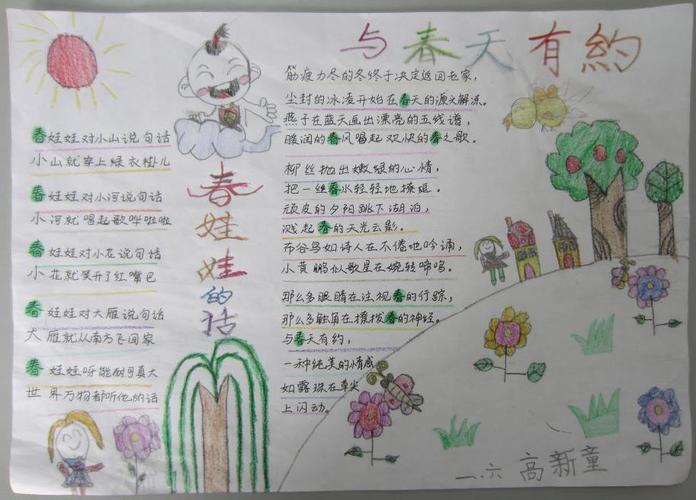 与春天有約
筋疲力尽的冬终于决定返回老家，
尘封的冰凌开始在春天的源头解冻。
燕子在蓝天画出漂亮的五线谱，
暖润的春风唱起欢快的春之歌。
柳丝抛出嫩绿的心情，
把一丝春水轻轻地撩逗。
顽皮的夕阳跳下湖泊，
溅起春的天光云影。
布谷鸟如诗人在不倦地吟诵，
小黄鹂似歌星在婉转啼鸣。
那么多眼睛在注视春的行踪，
那么多触角在撩拨春的神经。
与春天有约，
一种纯美的情感
如露珠在草尖
上闪动。
春娃娃的话
春娃娃对小山说句话
小山就穿上绿衣树儿
春娃娃对小河说句话
小河就唱起歌哗啦啦
春娃娃对小花说句话
小花就笑开了红嘴巴
春娃娃对大雁说句话
大雁就从南方飞回家
春娃娃呀能耐可真大
世界万物都听他的话
一.六 高新童